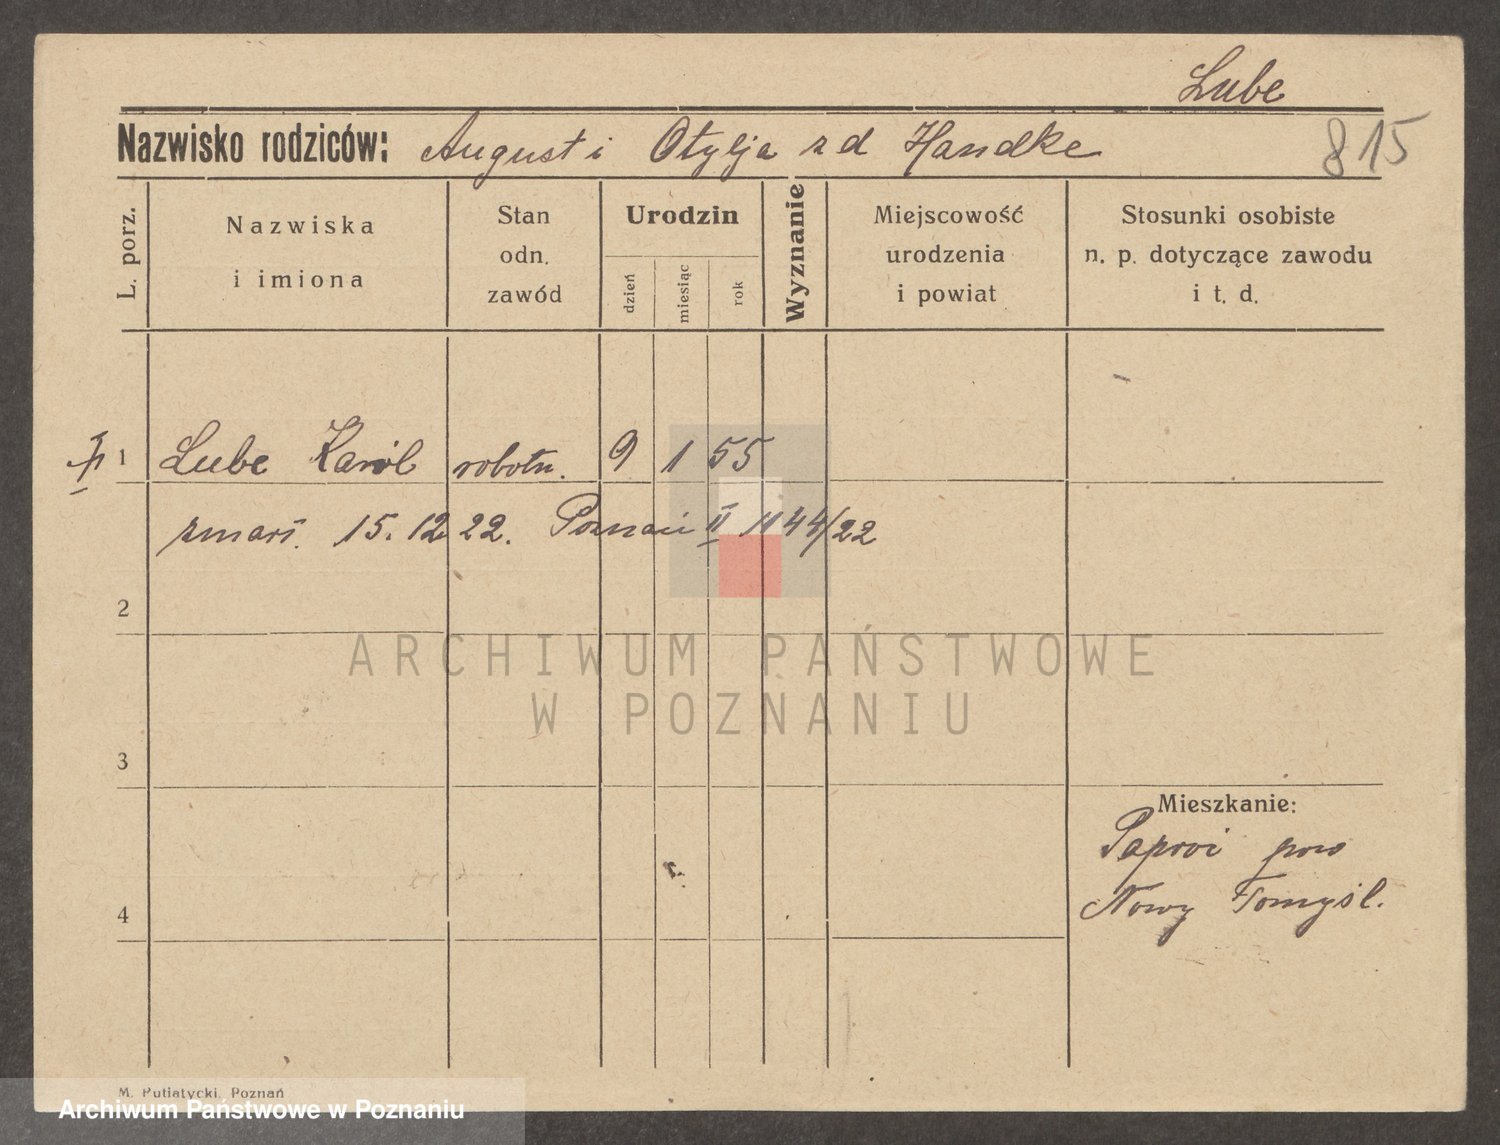 Lube
Nazwisko rodziców: August i Otylja z d Handke
815
L. porz.
Nazwiska i imiona
Stan odn. zawód
Urodzin
dzień
miesiąc
rok
Wyznanie
Miejscowość urodzenia i powiat
Stosunki osobiste n. p. dotyczące zawodu i t. d.
1 Lube Karol robotn. 9 1 55
zmarł. 15. 12 22. Poznań II 1144/22
2
ARCHIWUM PAŃSTWOWE
W POZNANIU
3
Mieszkanie:
Paproć pow
4
Nowy Tomyśl.
M. Putiatycki, Poznań
Archiwum Państwowe w Poznaniu